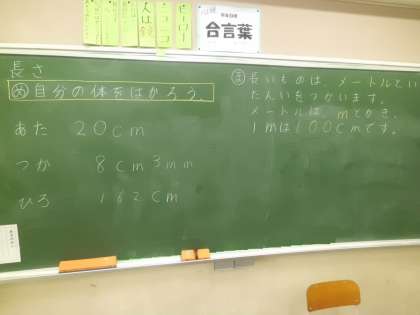 合言葉
長さ
め 自分の体をはかろう。
あた 20cm
つか 8cm3mm
ひろ 162cm
ま 長いものは、メートルとい
たんいをつかいます。
メートルは、mでかき、
1mは100cmです。